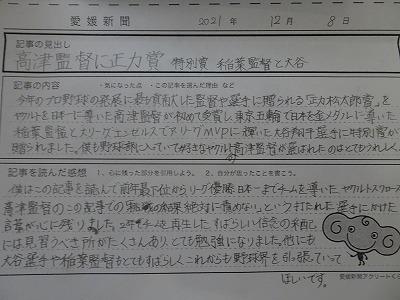 愛媛新聞 2021年 12月 8日
記事の見出し
高津監督に正力賞 特別賞 稲葉監督と大谷
記事の内容 ・気になった点 ・この記事を選んだ理由 など
今年のプロ野球の発展に最も貢献した監督や選手に贈られる「正力松太郎賞」を
ヤクルトを日本一に導いた高津監督が初めて受賞し、東京五輪で日本を金メダルに導いた
稲葉監督と大リーグエンゼルスでアリーグMVPに輝いた大谷翔平選手に特別賞が
贈られました。僕も野球部に入っていて好きなヤクルトの高津監督が選ばれたのはとてもうれしく
記事を読んだ感想 1、心に残った部分を引用しよう。 2、自分が思ったことを書こう。
僕はこの記事を読んで前年最下位からリーグ優勝日本一までチームを導いたヤクルトスワローズ
高津監督のこの記事での「挑戦の結果絶対に責めない」という打たれた選手にかけた
言葉が心に残りました。2年でチームを再生したすばらしい信念の采配
には見習うべき所がたくさんあり、とても勉強になりました。他にも
大谷選手や稲葉監督もとてもすばらしく、これからも野球界を引っ張っていって
ほしいです。
愛媛新聞アクリートくらぶ